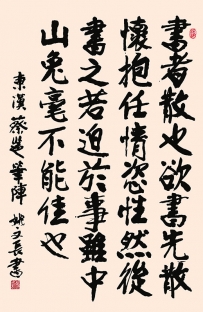 書者散也欲書先散
懷抱任情恣性然後
書之若迫於事雖中
山兔毫不能佳也
東漢蔡邕筆陣 書